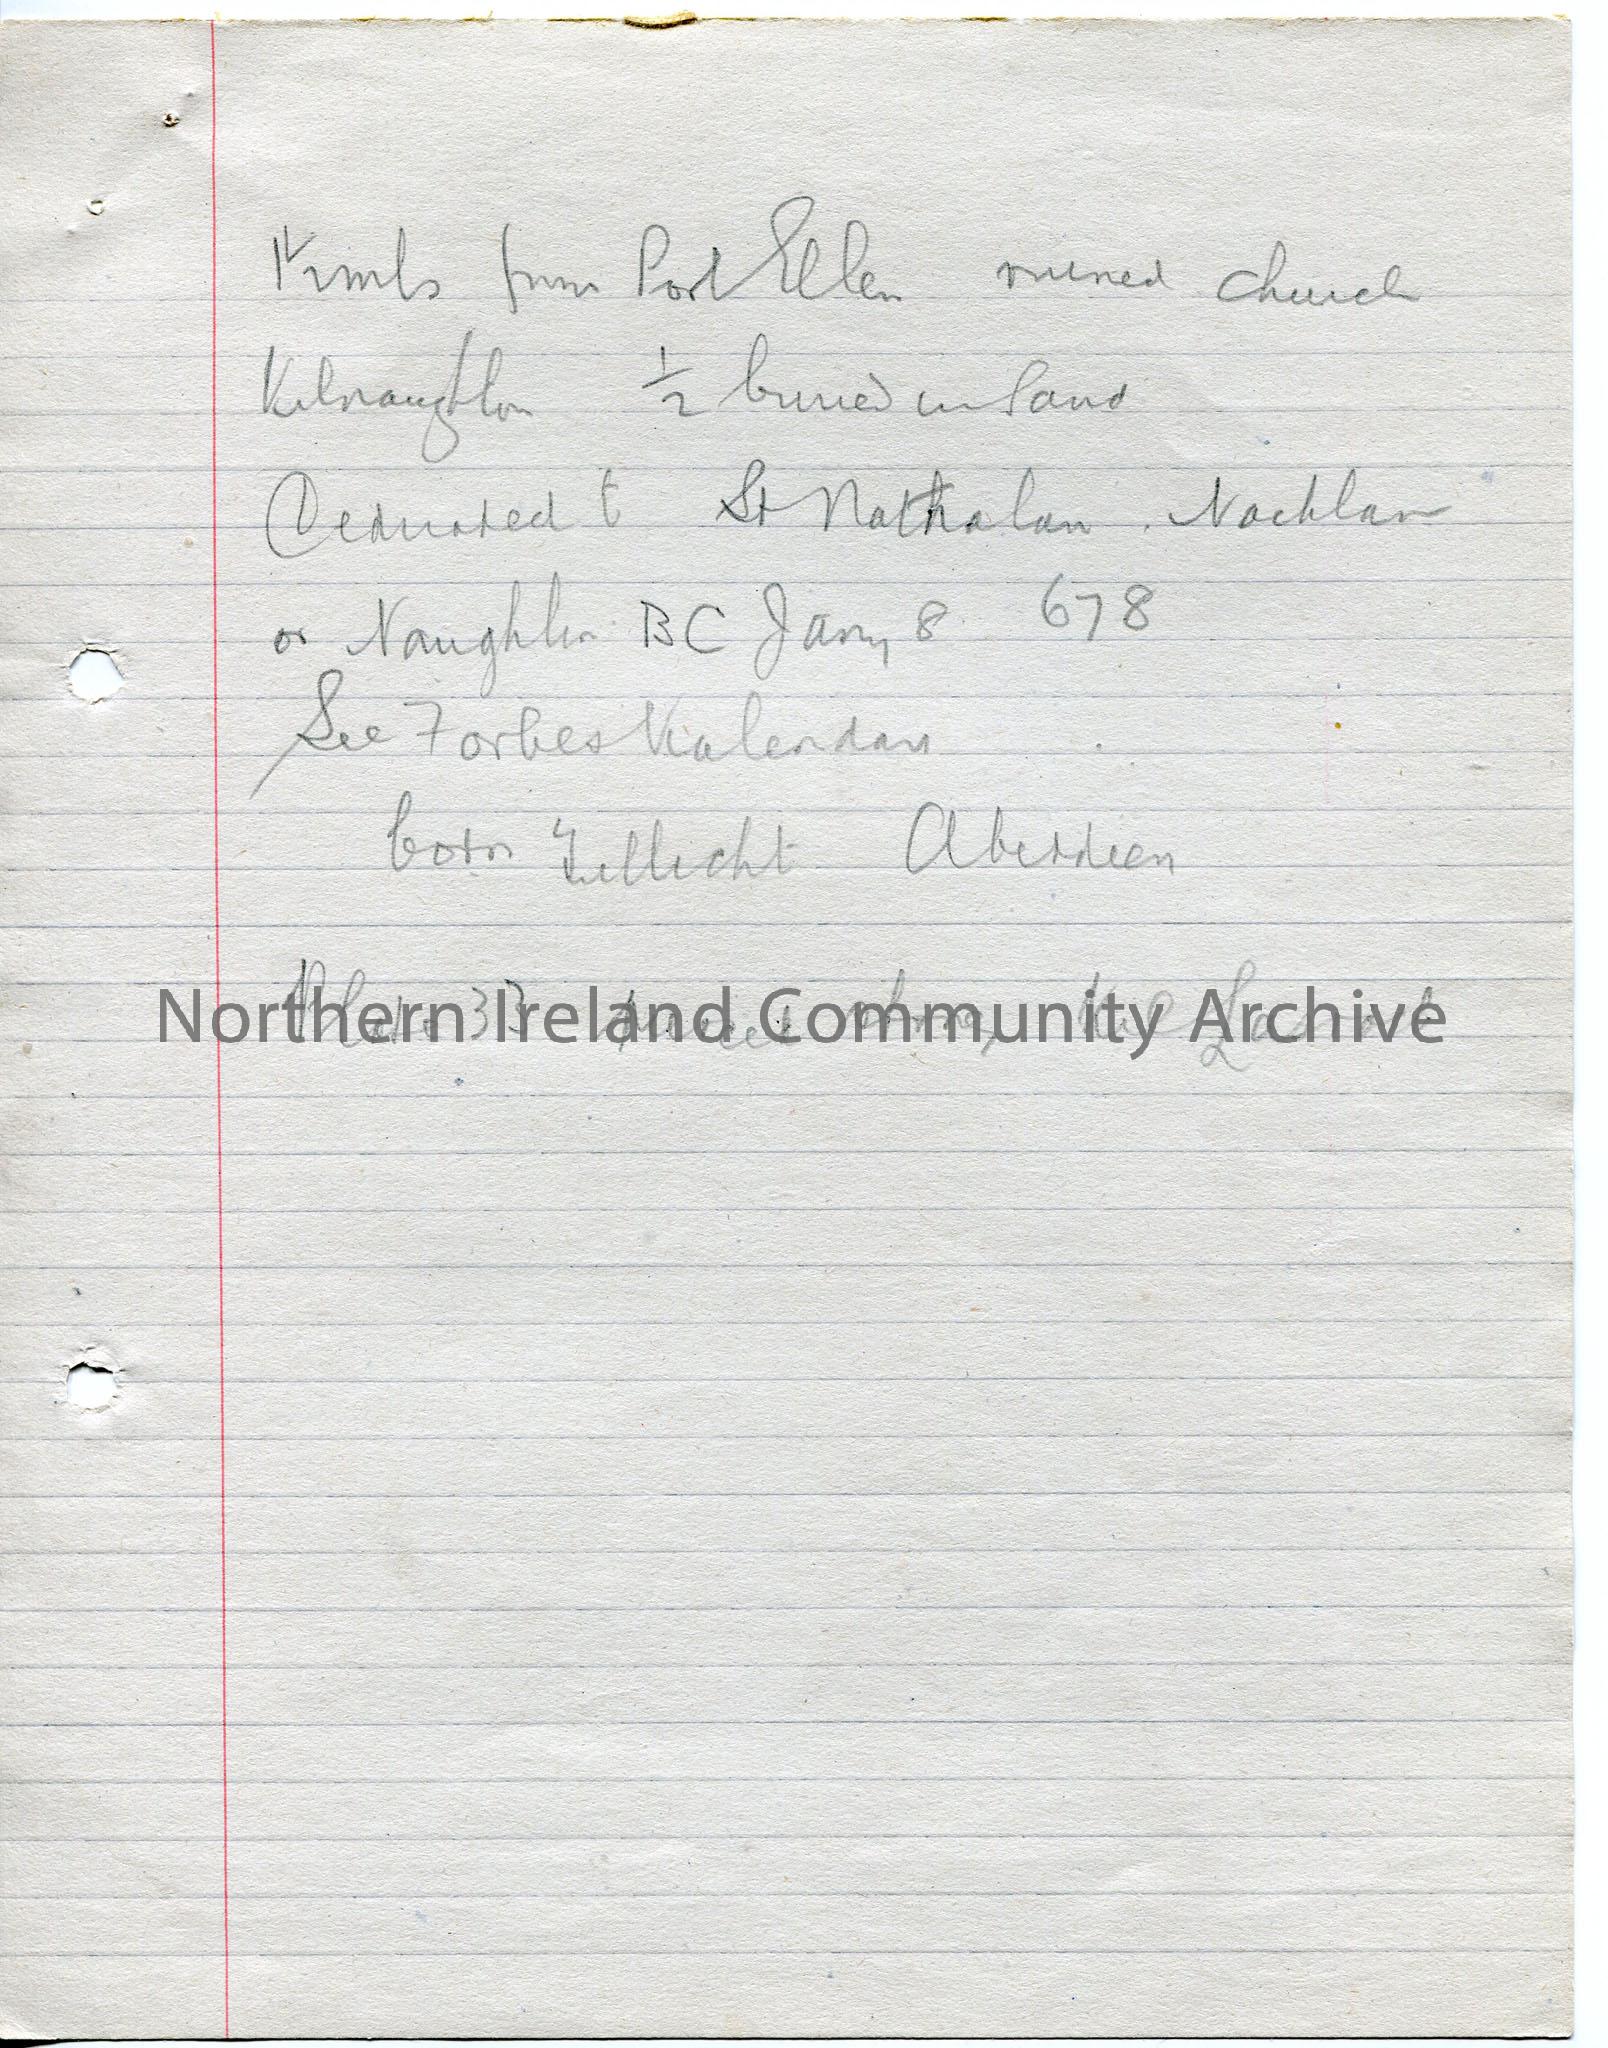 from Port Ellen ruined church
Kilnaughton ½ buried in Sand
Dedicated to St Nathalan. Nachlan
or Naughlan BC Jany 8 678
See Forbes Kalendars
born Tullicht Aberdeen
Plate 33
Northern Ireland Community Archive